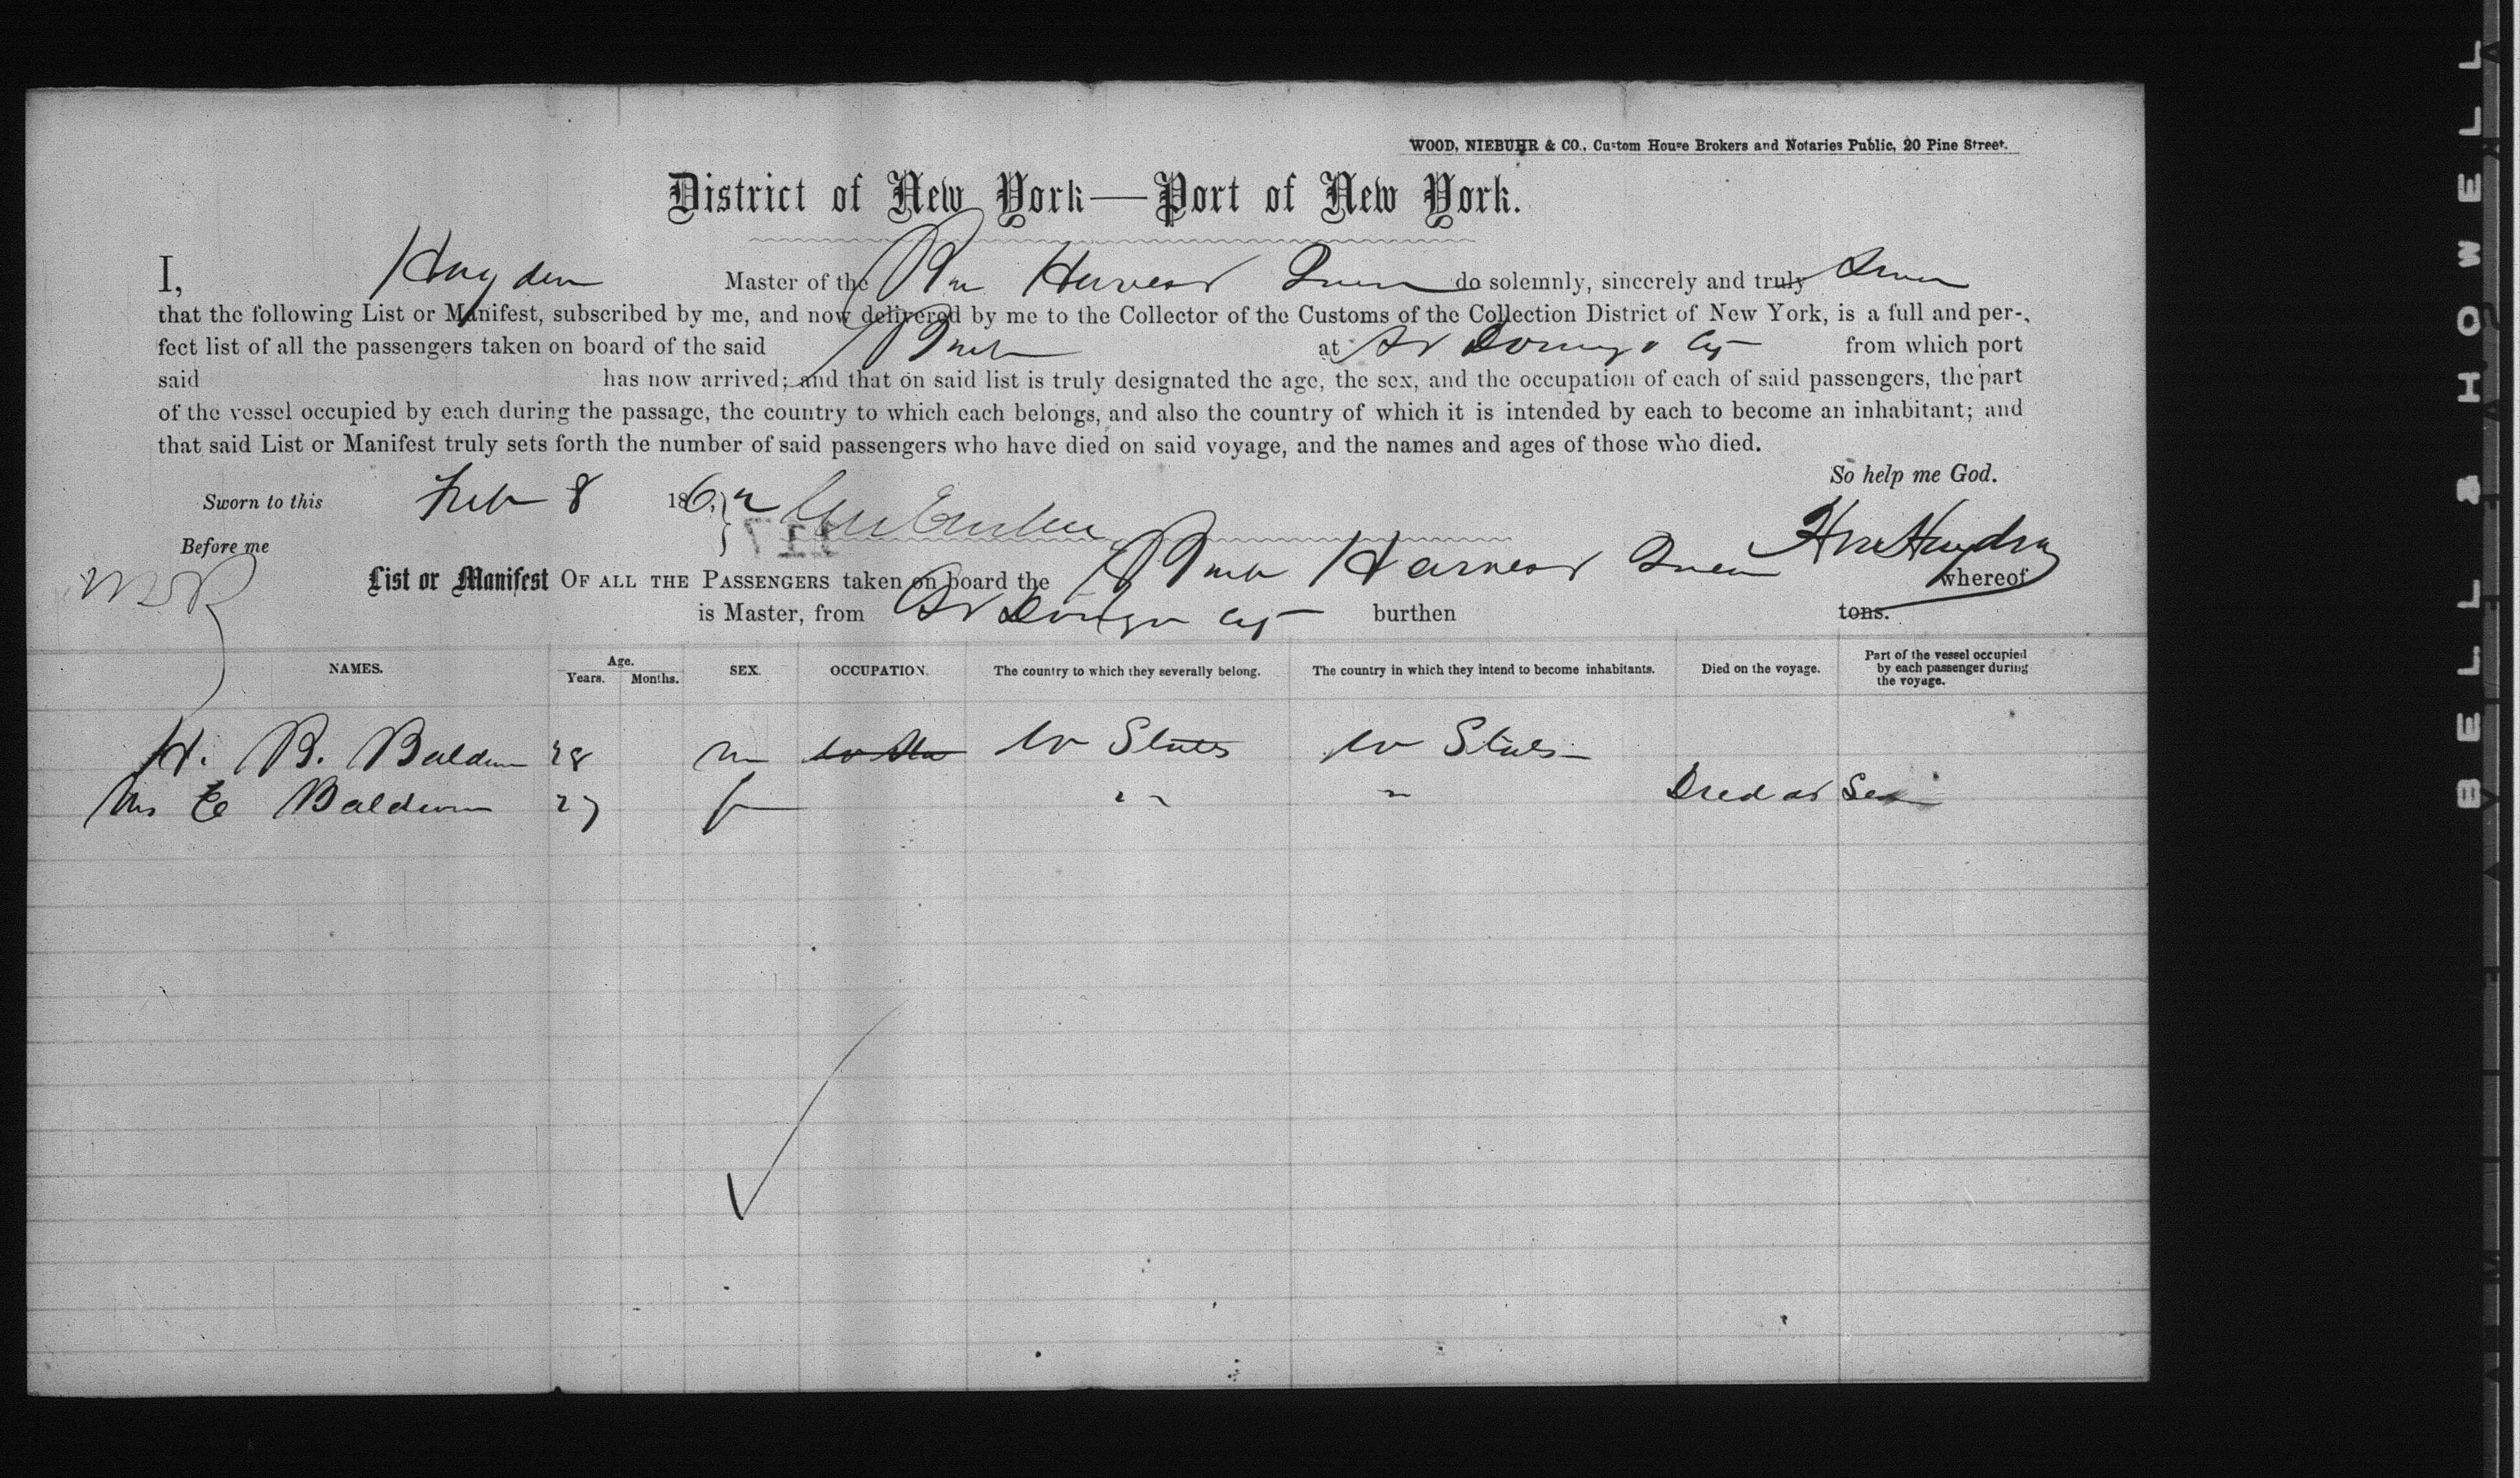 WOOD, NIEBUHR & CO., Custom House Brokers and Notaries Public, 20 Pine Street.
District of New York—Port of New York.
I, Hayden Master of the Harvest Queen do solemnly, sincerely and truly Swear
that the following List or Manifest, subscribed by me, and now delivered by me to the Collector of the Customs of the Collection District of New York, is a full and per-
fect list of all the passengers taken on board of the said at St Domingo Cy from which port
said has now arrived; and that on said list is truly designated the age, the sex, and the occupation of each of said passengers, the part
of the vessel occupied by each during the passage, the country to which each belongs, and also the country of which it is intended by each to become an inhabitant; and
that said List or Manifest truly sets forth the number of said passengers who have died on said voyage, and the names and ages of those who died.
So help me God.
Sworn to this Feb 8 186
Before me
117
List or Manifest OF ALL THE PASSENGERS taken on board the Harvest Queen whereof
is Master, from St Domingo Cy burthen tons.
NAMES. Age. Years. Months. SEX. OCCUPATION. The country to which they severally belong. The country in which they intend to become inhabitants. Died on the voyage. Part of the vessel occupied by each passenger during the voyage.
H. B. Baldwin 28 m U States U States
Mrs E Baldwin 27 f " " Died at Sea
BELL & HOWELL